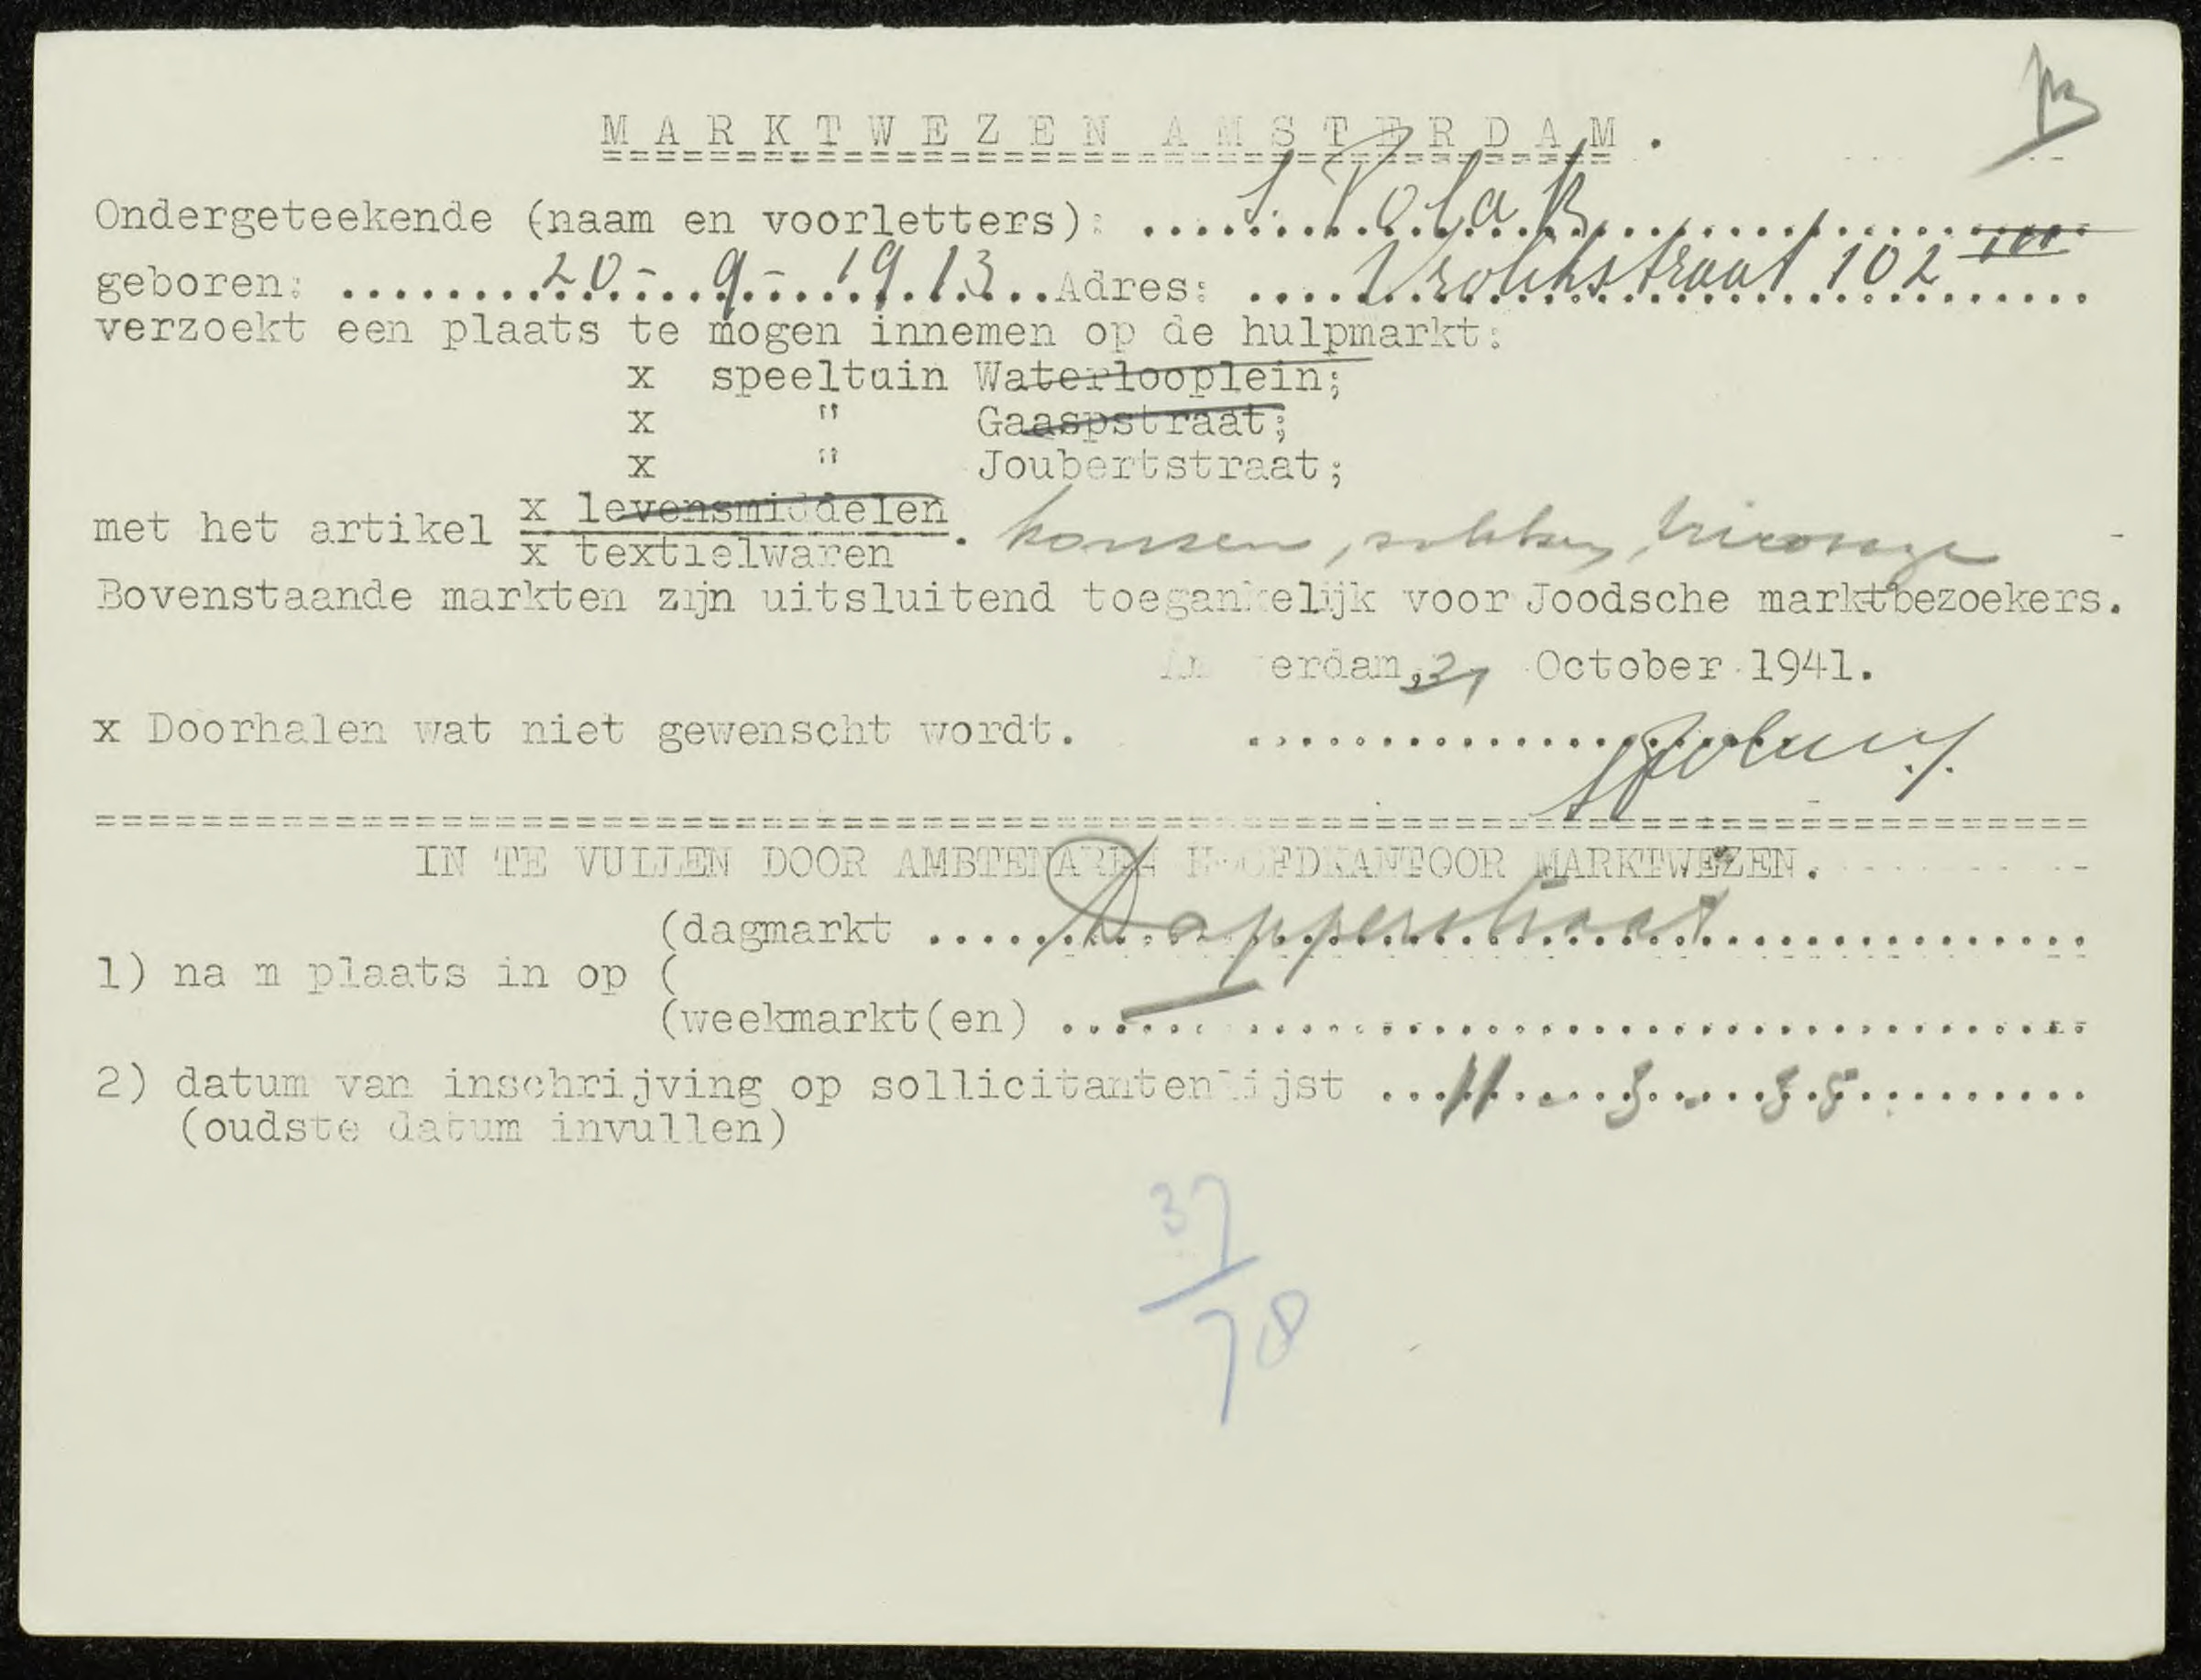 MARKTWEZEN AMSTERDAM.
Ondergeteekende (naam en voorletters): S. Polak
geboren: 20-9-1913 Adres: Vrolikstraat 102 III
verzoekt een plaats te mogen innemen op de hulpmarkt:
x speeltuin Waterlooplein;
x " Gaaspstraat;
x " Joubertstraat;
met het artikel x levensmiddelen
x textielwaren. kousen, sokken, tricotage
Bovenstaande markten zijn uitsluitend toegankelijk voor Joodsche marktbezoekers.
Amsterdam, October 1941.
x Doorhalen wat niet gewenscht wordt.
IN TE VULLEN DOOR AMBTENAREN HOOFDKANTOOR MARKTWEZEN.
(dagmarkt Dapperstraat
1) nam plaats in op (
(weekmarkt(en)
2) datum van inschrijving op sollicitantenlijst 11-3-35
(oudste datum invullen)
37
78